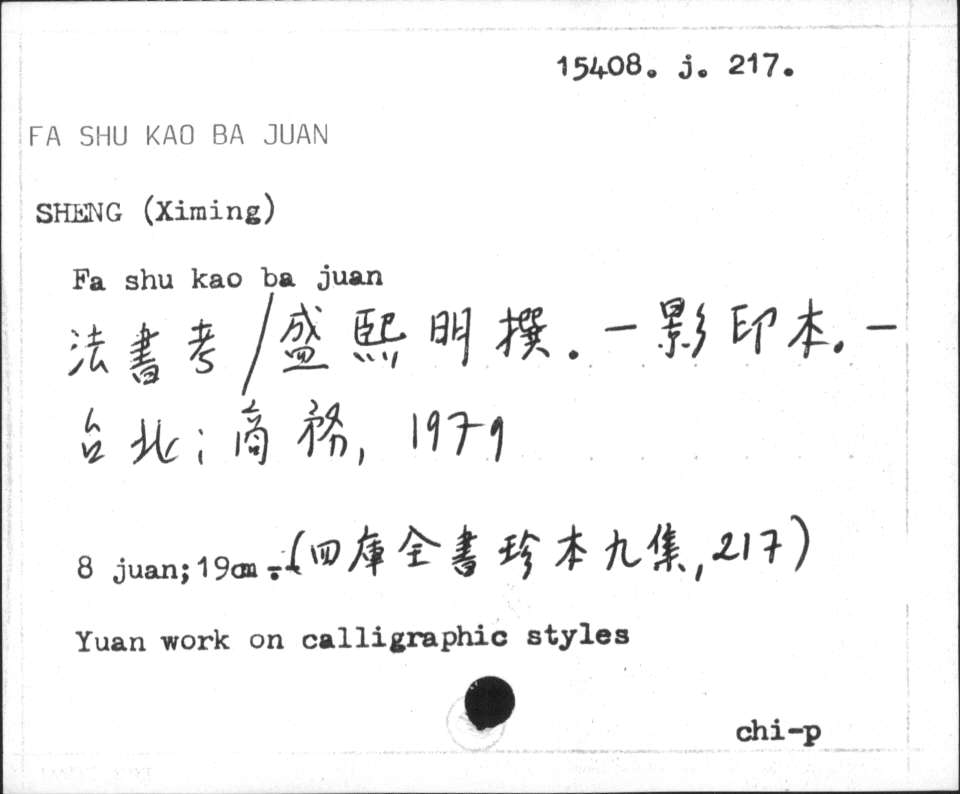 15408. j. 217.
FA SHU KAO BA JUAN
SHENG (Ximing)
Fa shu kao ba juan
法書考/盛熙明撰. — 影印本. —
台北; 商務, 1979
8 juan; 19cm .-(四庫全書珍本九集, 217)
Yuan work on calligraphic styles
chi-p